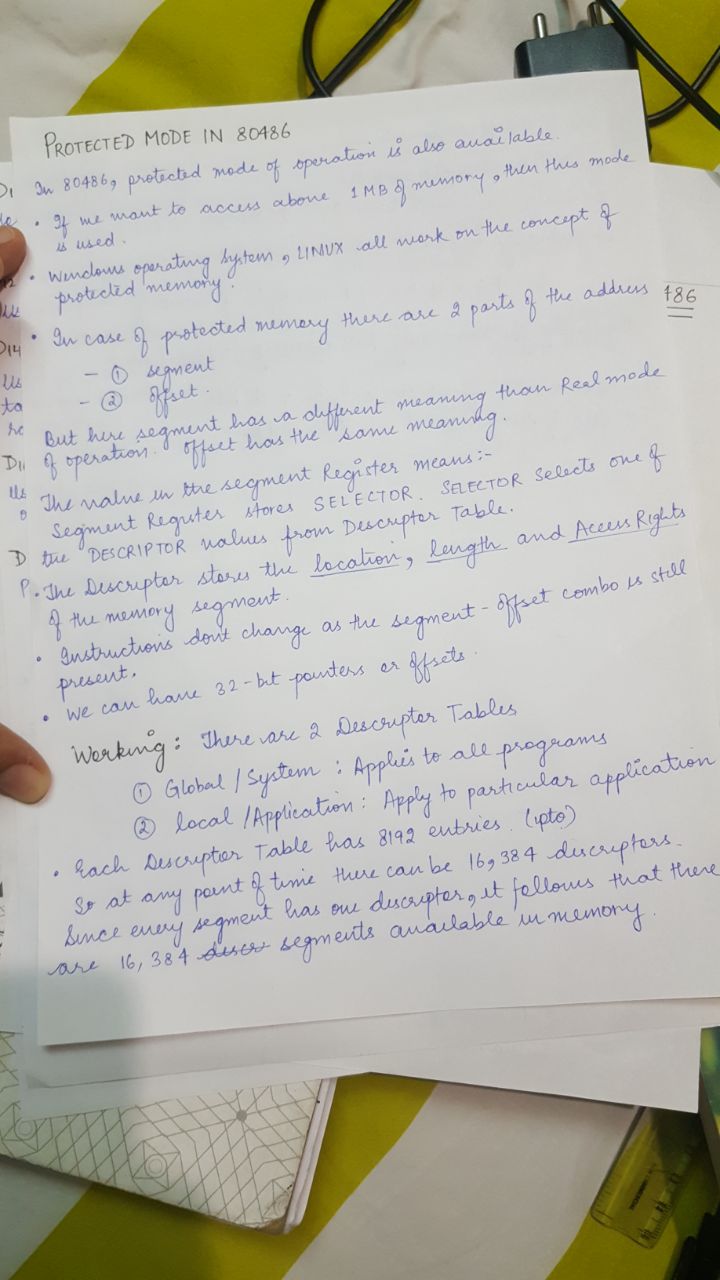 PROTECTED MODE IN 80486
In 80486, protected mode of operation is also available.
• If we want to access above 1 MB of memory, then this mode
is used.
• Windows operating system, LINUX all work on the concept of
protected memory.
• In case of protected memory there are 2 parts of the address
- ① segment
- ② offset.
But here segment has a different meaning than Real mode
of operation. Offset has the same meaning.
The value in the segment Register means:-
Segment Register stores SELECTOR. SELECTOR selects one of
the DESCRIPTOR values from Descriptor Table.
• The Descriptor stores the location, length and Access Rights
of the memory segment.
• Instructions dont change as the segment-offset combo is still
present.
• We can have 32-bit pointers or offsets.
Working: There are 2 Descriptor Tables
① Global/System : Applies to all programs
② local/Application: Apply to particular application
• Each Descriptor Table has 8192 entries. (upto)
So at any point of time there can be 16,384 descriptors.
Since every segment has one descriptor, it follows that there
are 16,384 descr segments available in memory.
486